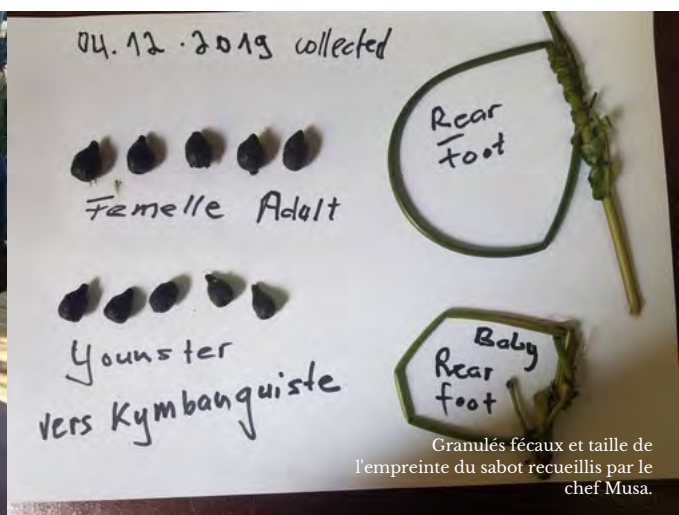 04.12.2019 collected
Femelle Adalt
Rear
foot
Younster
vers Kymbanguiste
Baby
Rear
foot
Granulés fécaux et taille de
l'empreinte du sabot recueillis par le
chef Musa.